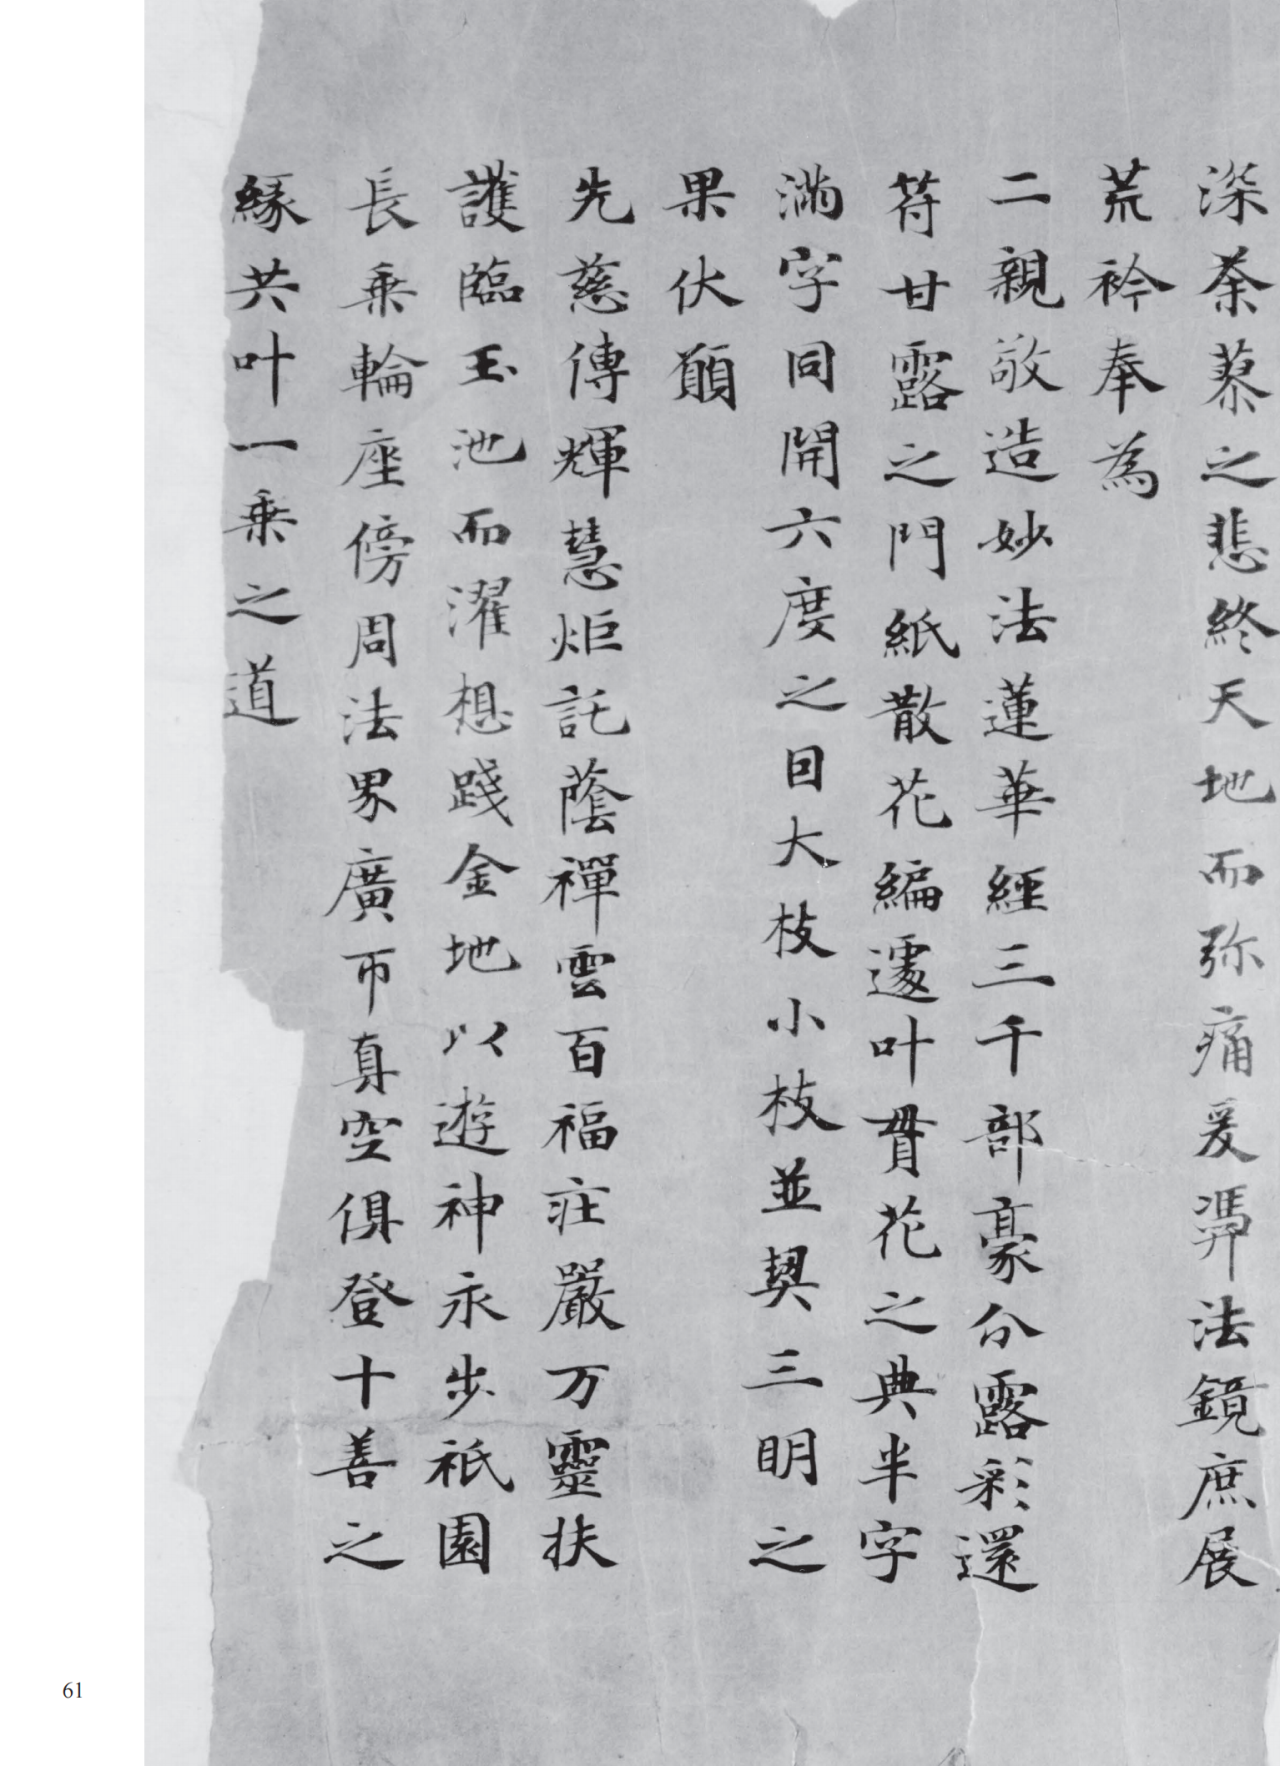 深荼蓼之悲終天地而弥痛爰馮法鏡庶展
荒衿奉為
二親敬造妙法蓮華經三千部豪分露彩還
符甘露之門紙散花編遽叶貫花之典半字
滿字同開六度之因大枝小枝並契三明之
果伏願
先慈傳輝慧炬託蔭禪雲百福莊嚴万靈扶
護臨玉池而濯想踐金地以遊神永步祇園
長乘輪座傍周法界廣帀真空俱登十善之
緣共叶一乘之道
61